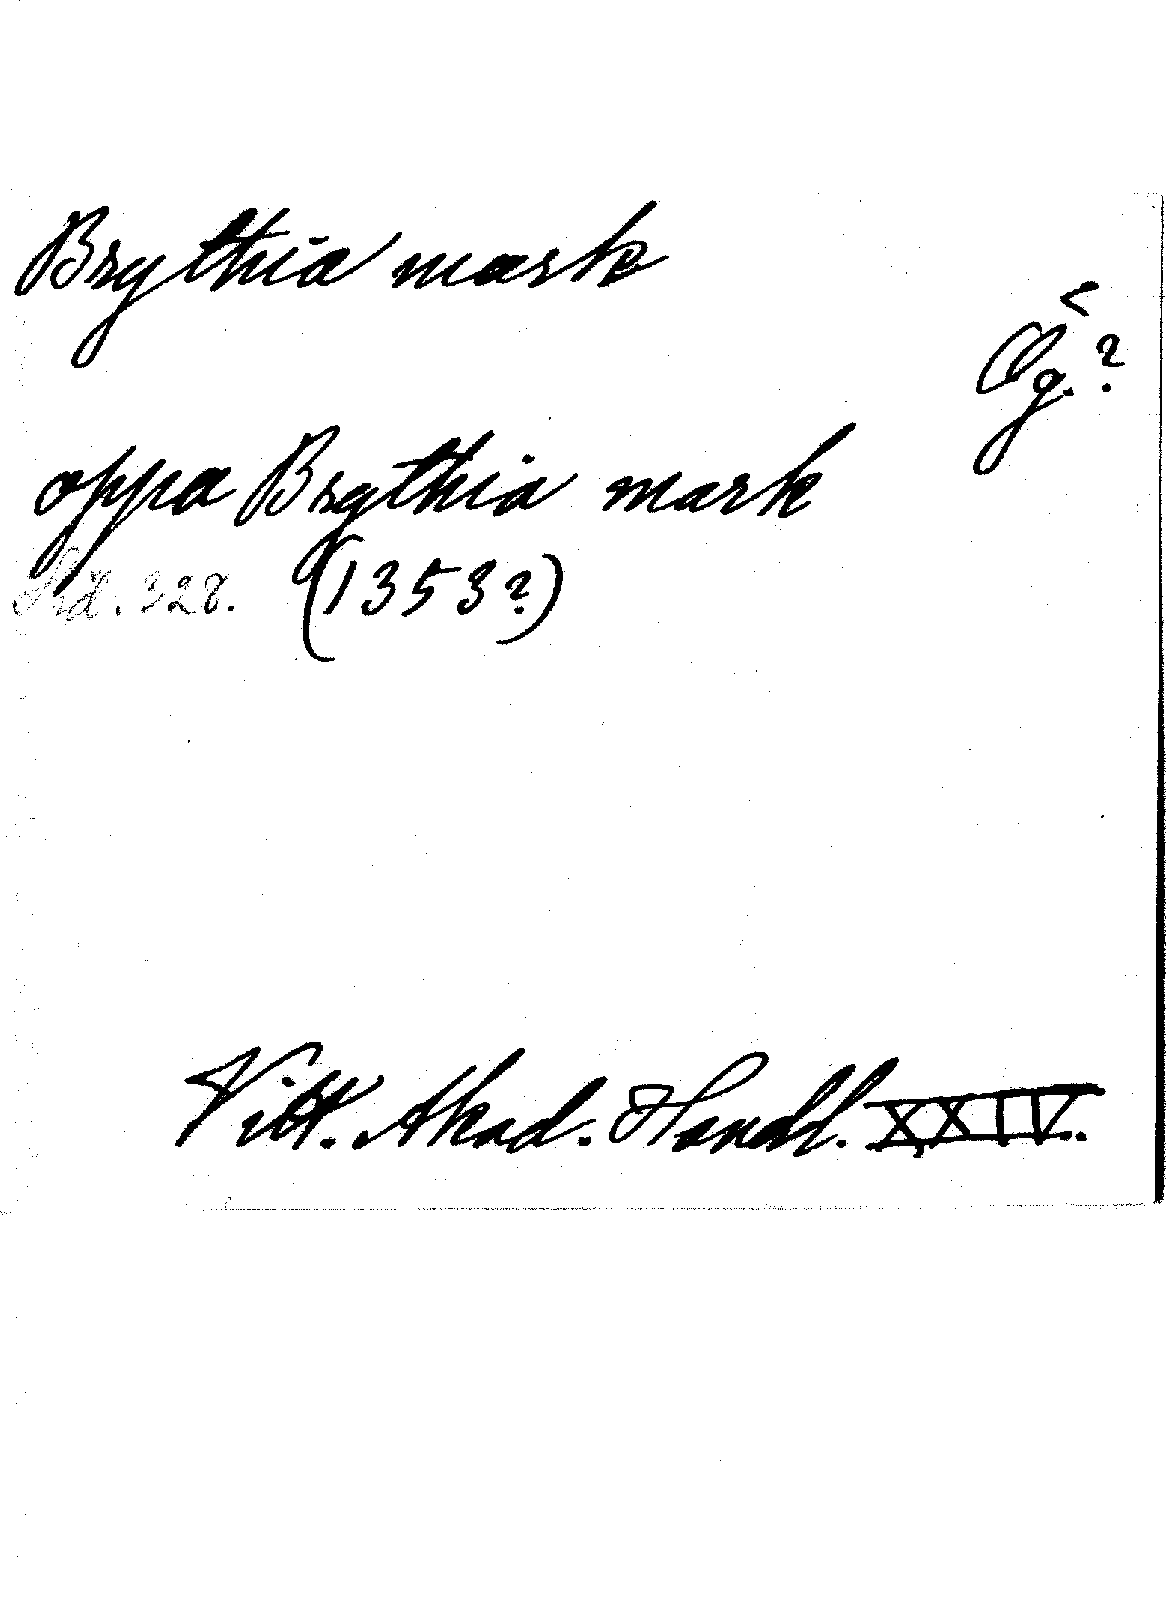 Brythia mark
Ög.?
oppa Brythia mark
Sid. 328. (1353?)
Vitt. Akad. Handl. XXIV.